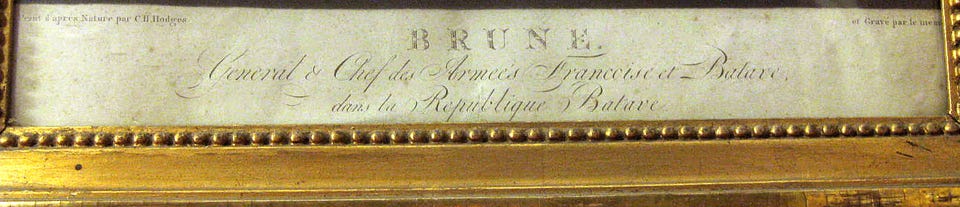 Peint d'après Nature par C.H. Hodges
et Gravé par le meme
BRUNE.
General & Chef des Armées Francoise et Batave,
dans la Republique Batave